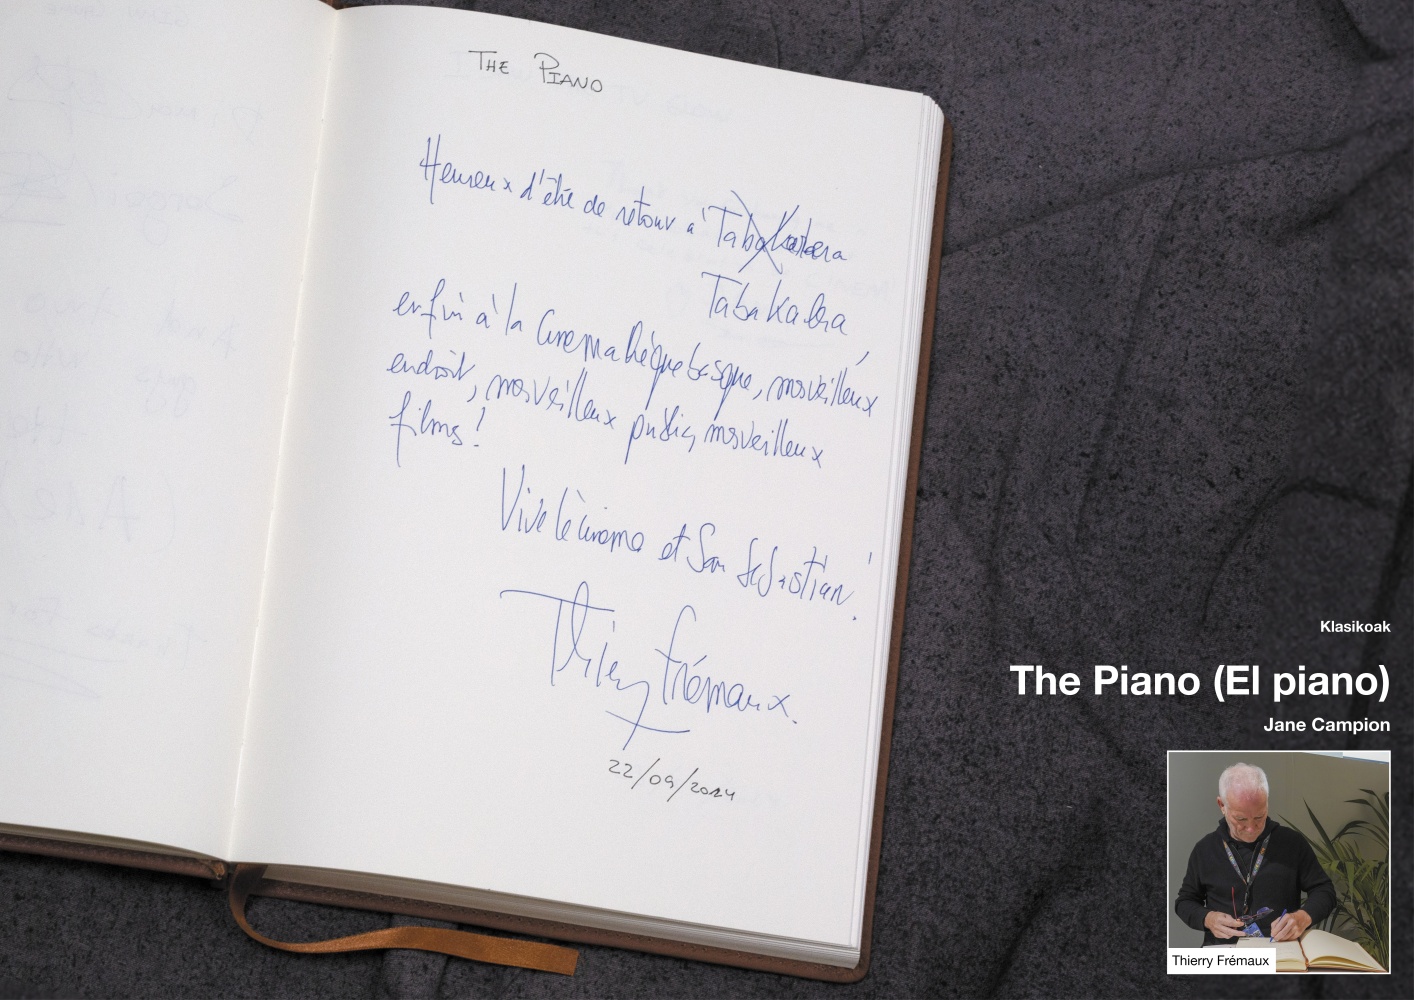 THE PIANO
Heureux d'être de retour à Tabakalera
Tabakalera,
enfin à la Cinemathèque basque, merveilleux
endroit, merveilleux public, merveilleux
films !
Vive le cinema et San Sebastian !
Thierry Frémaux.
22/09/2024
Klasikoak
The Piano (El piano)
Jane Campion
Thierry Frémaux